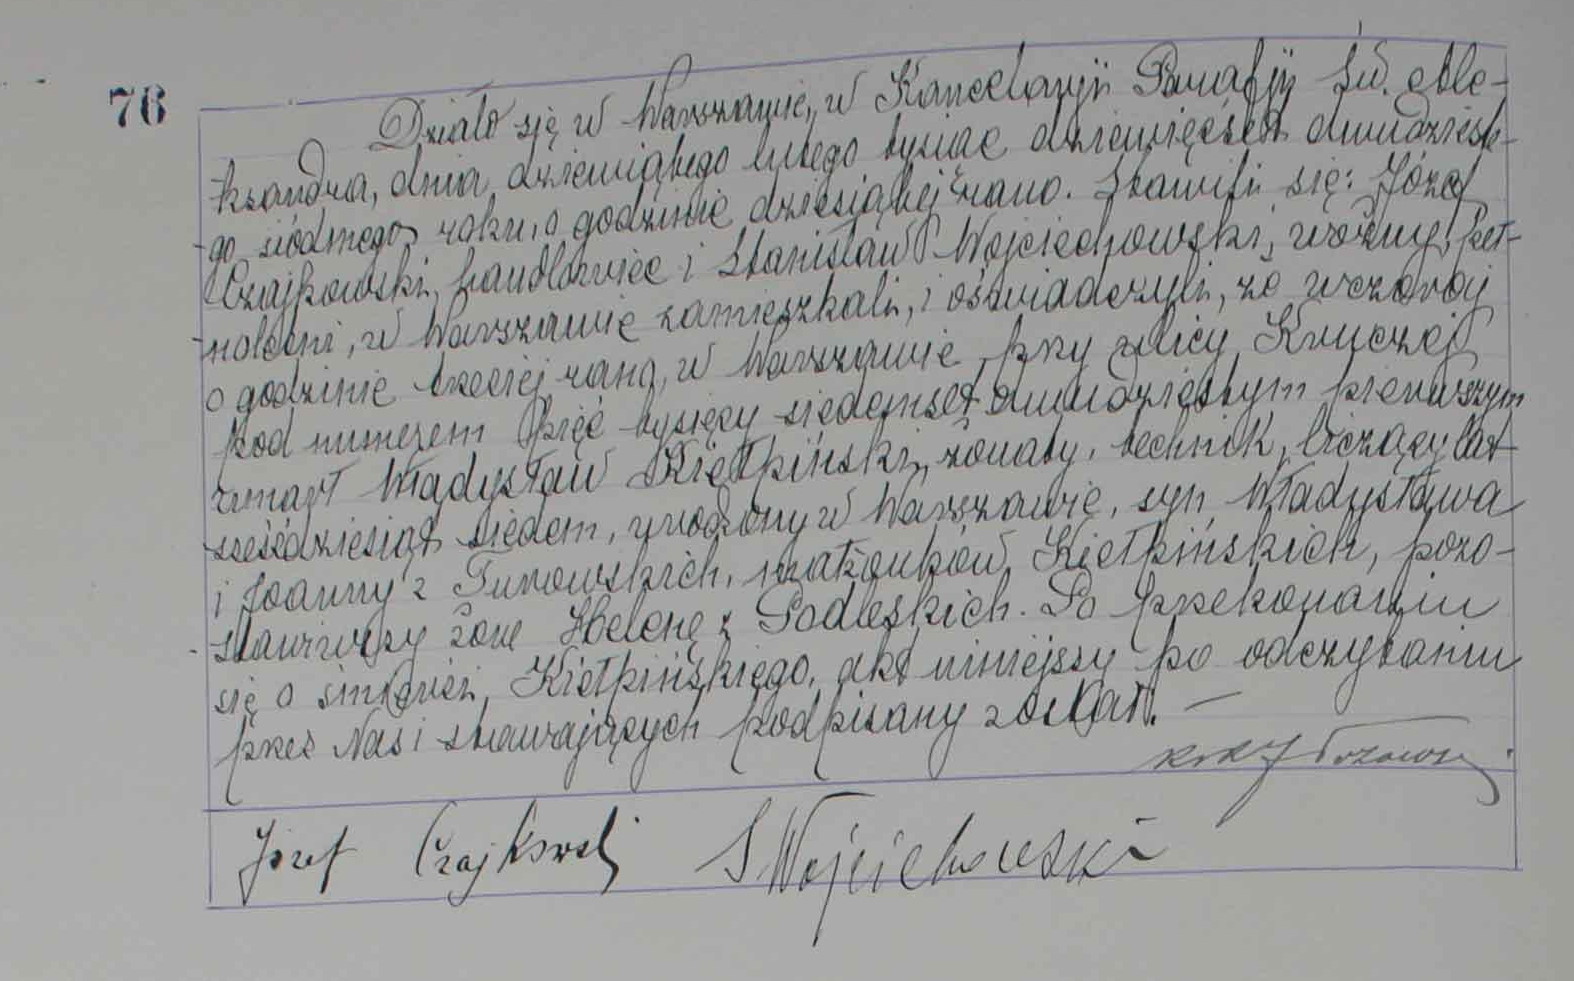 76
Działo się w Warszawie, w Kancelaryji Parafji Św. Ale-
ksandra, dnia dziewiątego lutego tysiąc dziewięćset dwudzieste-
go siódmego roku, o godzinie dziesiątej rano. Stawili się: Józef
Czajkowski, handlowiec i Stanisław Wojciechowski, woźny, peł-
noletni, w Warszawie zamieszkali, i oświadczyli, że wczoraj
o godzinie trzeciej rano, w Warszawie przy ulicy Kruczej
pod numerem pięć tysięcy siedemset dwudziestym pierwszym
zmarł Władysław Kiełpiński, żonaty, technik, liczący lat
sześćdziesiąt siedem, urodzony w Warszawie, syn Władysława
i Joanny z Turowskich, małżonków Kiełpińskich, pozo-
stawiwszy żonę Helenę z Podleskich. Po przekonaniu
się o śmierci Kiełpińskiego, akt niniejszy po odczytaniu
przez Nas i stawających podpisany został. —
Józef Czajkowski S Wojciechowski